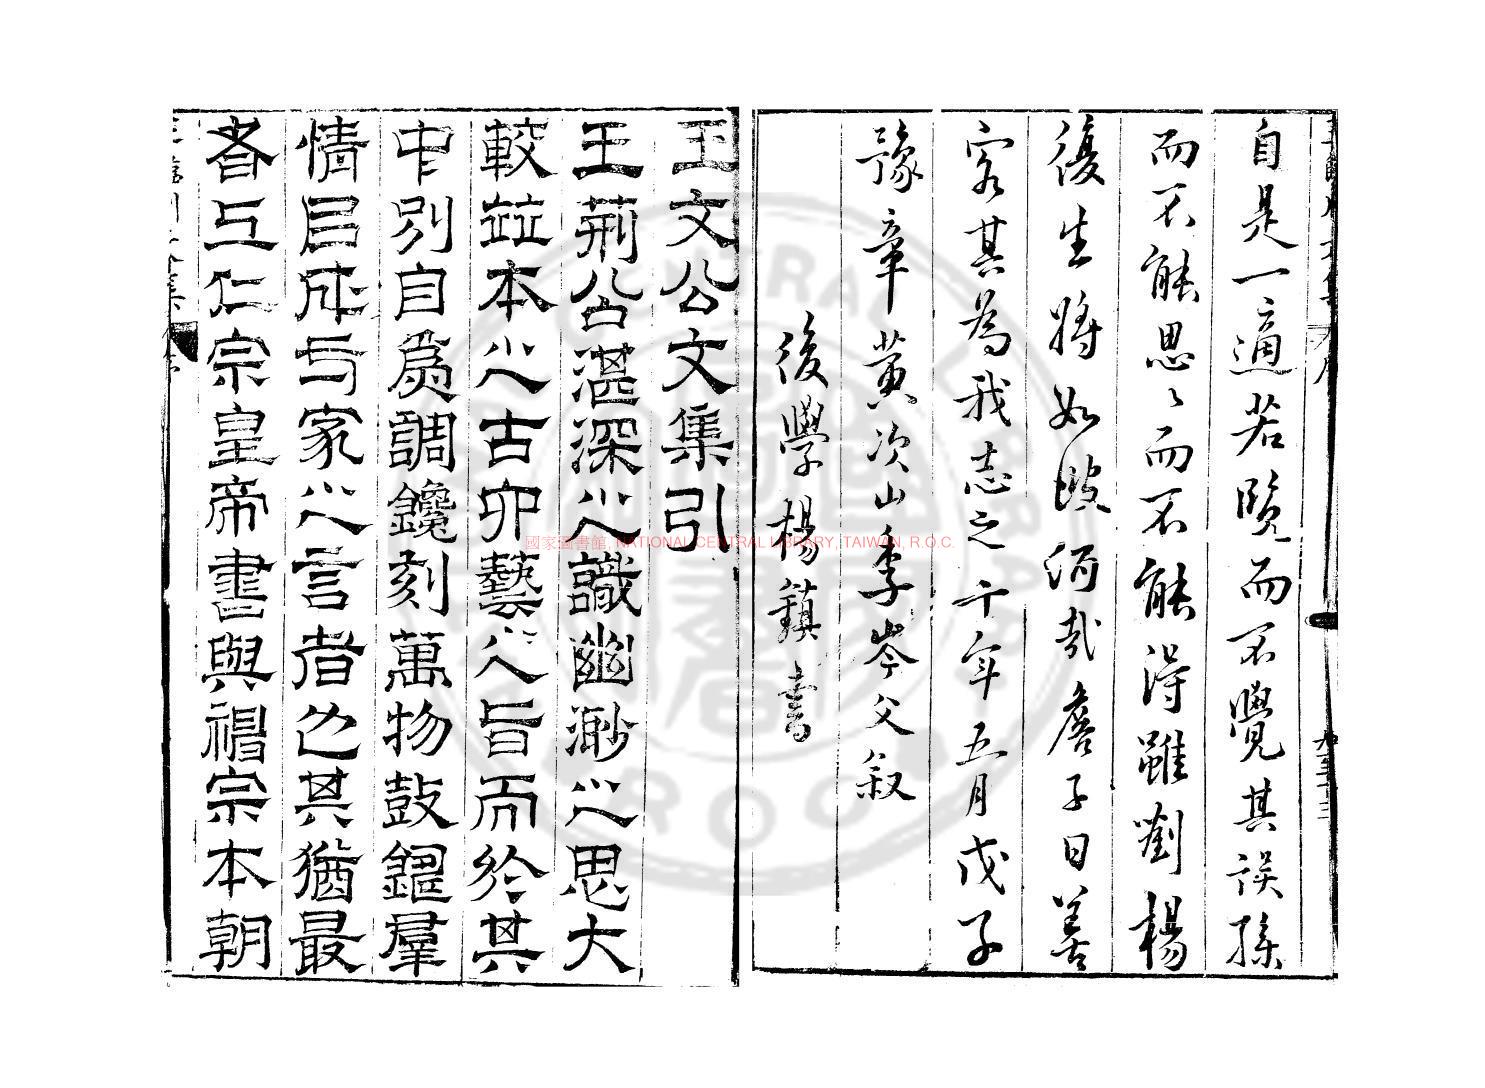 自是一適若覽而不覺其誤孫
而不能思〻而不能得雖劉楊
復生將如彼何哉詹子曰善
客其為我志之千年五月戊子
豫章黃次山季岑父叙
後學楊鎮書
王文公文集引
王荊公湛深之識幽渺之思大
較竝本之古六藝之旨而於其
中別自爲調鑱刻萬物鼓鑄羣
情目所与家之言者也其猶最
者互仁宗皇帝書與神宗本朝
國家圖書館, NATIONAL CENTRAL LIBRARY, TAIWAN, R.O.C.